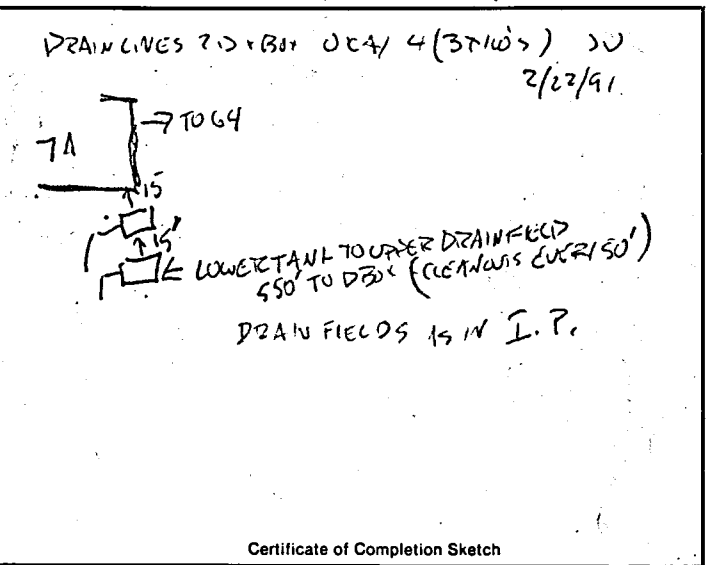 DRAIN LINES & D-BOX OKAY 4 (3x100's)
2/22/91
→ TO 64
7A
15'
15'
LOWER TANK TO UPPER DRAINFIELD
550' TO DBOX (CLEANOUTS EVERY 50')
DRAIN FIELDS IS IN I.P.
Certificate of Completion Sketch